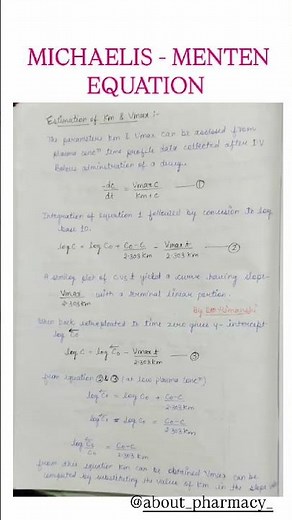 MICHAELIS - MENTEN
EQUATION
Estimation of Km & Vmax :-
The parameters Km & Vmax can be assessed from
plasma concⁿ time profile data collected after I.V
Bolus administration of a drug.
-dc/dt = Vmax C/Km + C —①
Integration of equation 1 followed by conversion to log
base 10.
log C = log C₀ + C₀-C/2.303 Km - Vmax t/2.303 Km —②
A semilog plot of C vs t yield a curve having slope
-Vmax/2.303 Km with a terminal linear portion.
By
When back extrapolated to time zero gives y-intercept
log C̄₀
log C = log C̄₀ - Vmax t/2.303 Km —③
from equation ② & ③ (at low plasma concⁿ)
log C̄₀ = log C₀ + C₀-C/2.303 Km
log C̄₀ - log C₀ = C₀-C/2.303 Km
log C̄₀/C₀ = C₀-C/2.303 Km
from this equation Km can be obtained Vmax can be
computed by substituting the value of Km in the slope
@about_pharmacy_